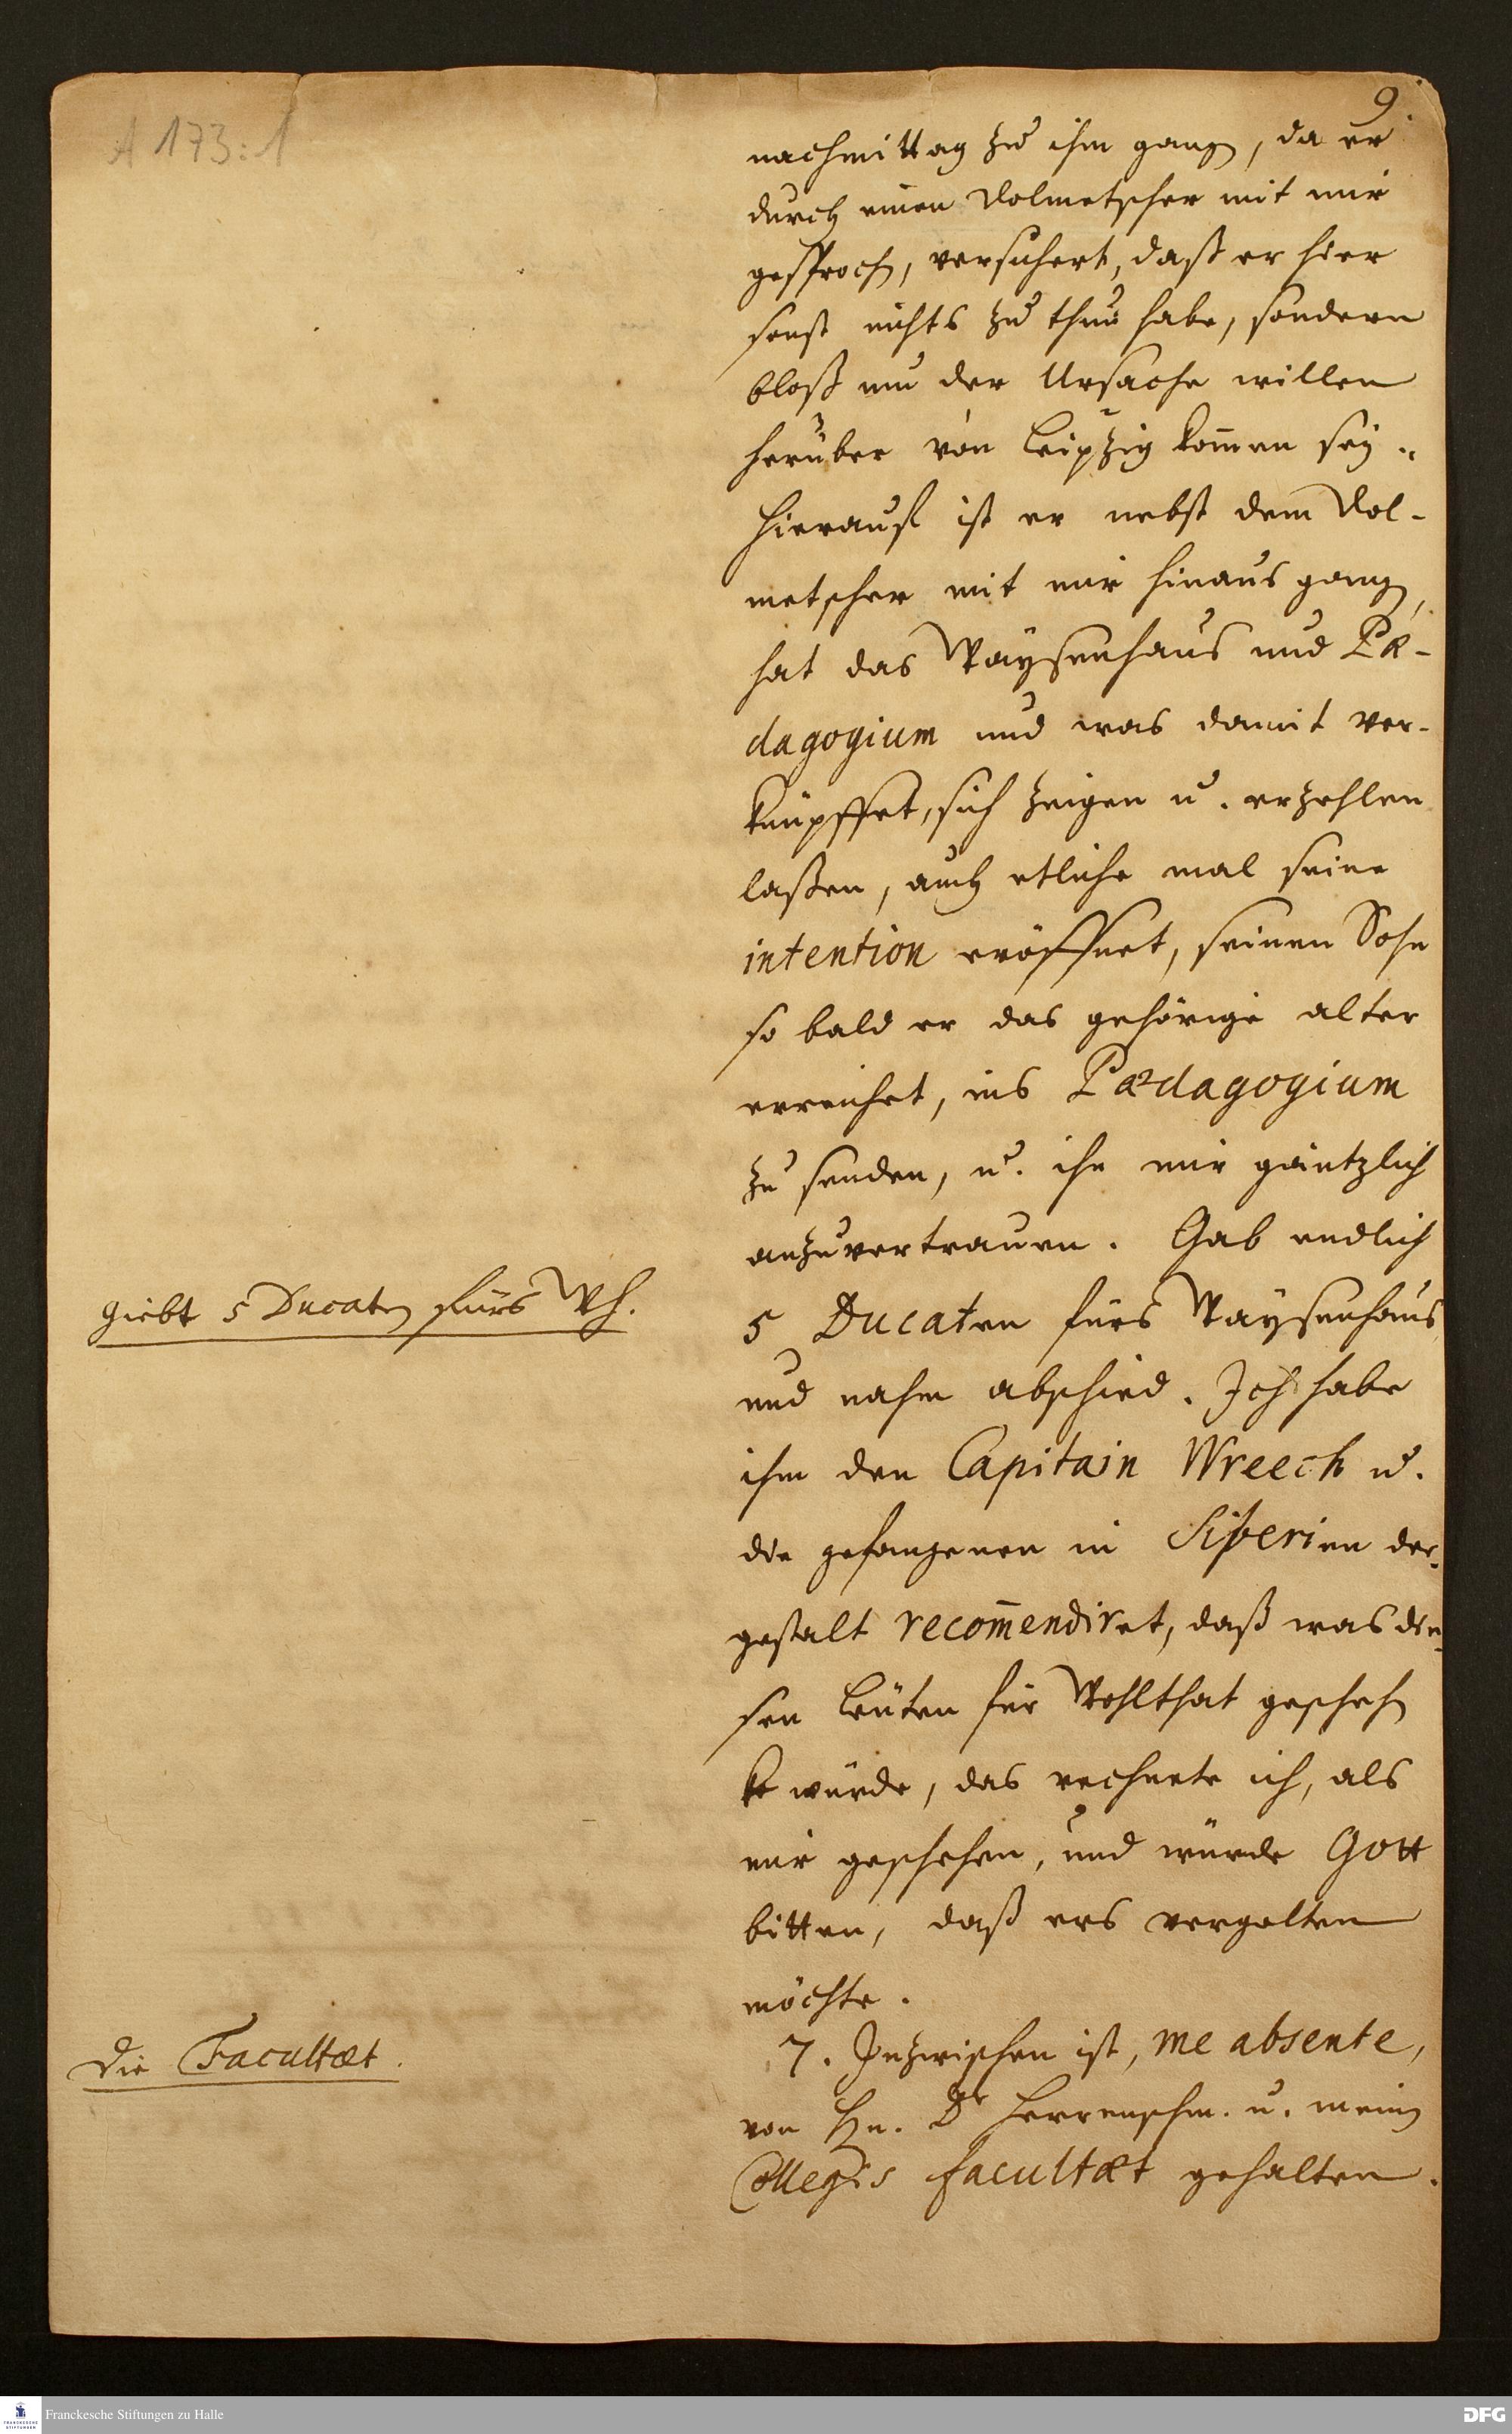 A 173:1
9
nachmittag zu ihm gang, da er
durch einen Dolmetscher mit mir
gesproch, versichert, daß er hier
sonst nichts zu thun habe, sondern
bloß um der Ursache willen
herüber von Leipzig kom̄en sey.
Hierauf ist er nebst dem Dol-
metscher mit mir hinaus gang,
hat das Waysenhaus und Pæ-
dagogium und was damit ver-
knüpffet, sich zeigen u. erzehlen
laßen, auch etliche mal seine
intention eröffnet, seinen Sohn
so bald er das gehörige alter
erreichet, ins Pædagogium
zu senden, u. ihn mir gäntzlich
anzuvertrauen. Gab endlich
giebt 5 Ducaten fürs Wh.
5 Ducaten fürs Waysenhaus
und nahm abschied. Ich habe
ihm den Capitain Wreech u.
die gefangenen in Siberien der-
gestalt recom̄endiret, daß was die-
sen Leuten für Wohlthat gescheh
würde, das rechnete ich, als
mir geschehen, und würde Gott
bitten, daß ers vergelten
möchte.
Die Facultæt.
7. Inzwischen ist, me absente,
von Hn. Dr Herrenschm. u. mein
Collegis facultæt gehalten.
Franckesche Stiftungen zu Halle
DFG